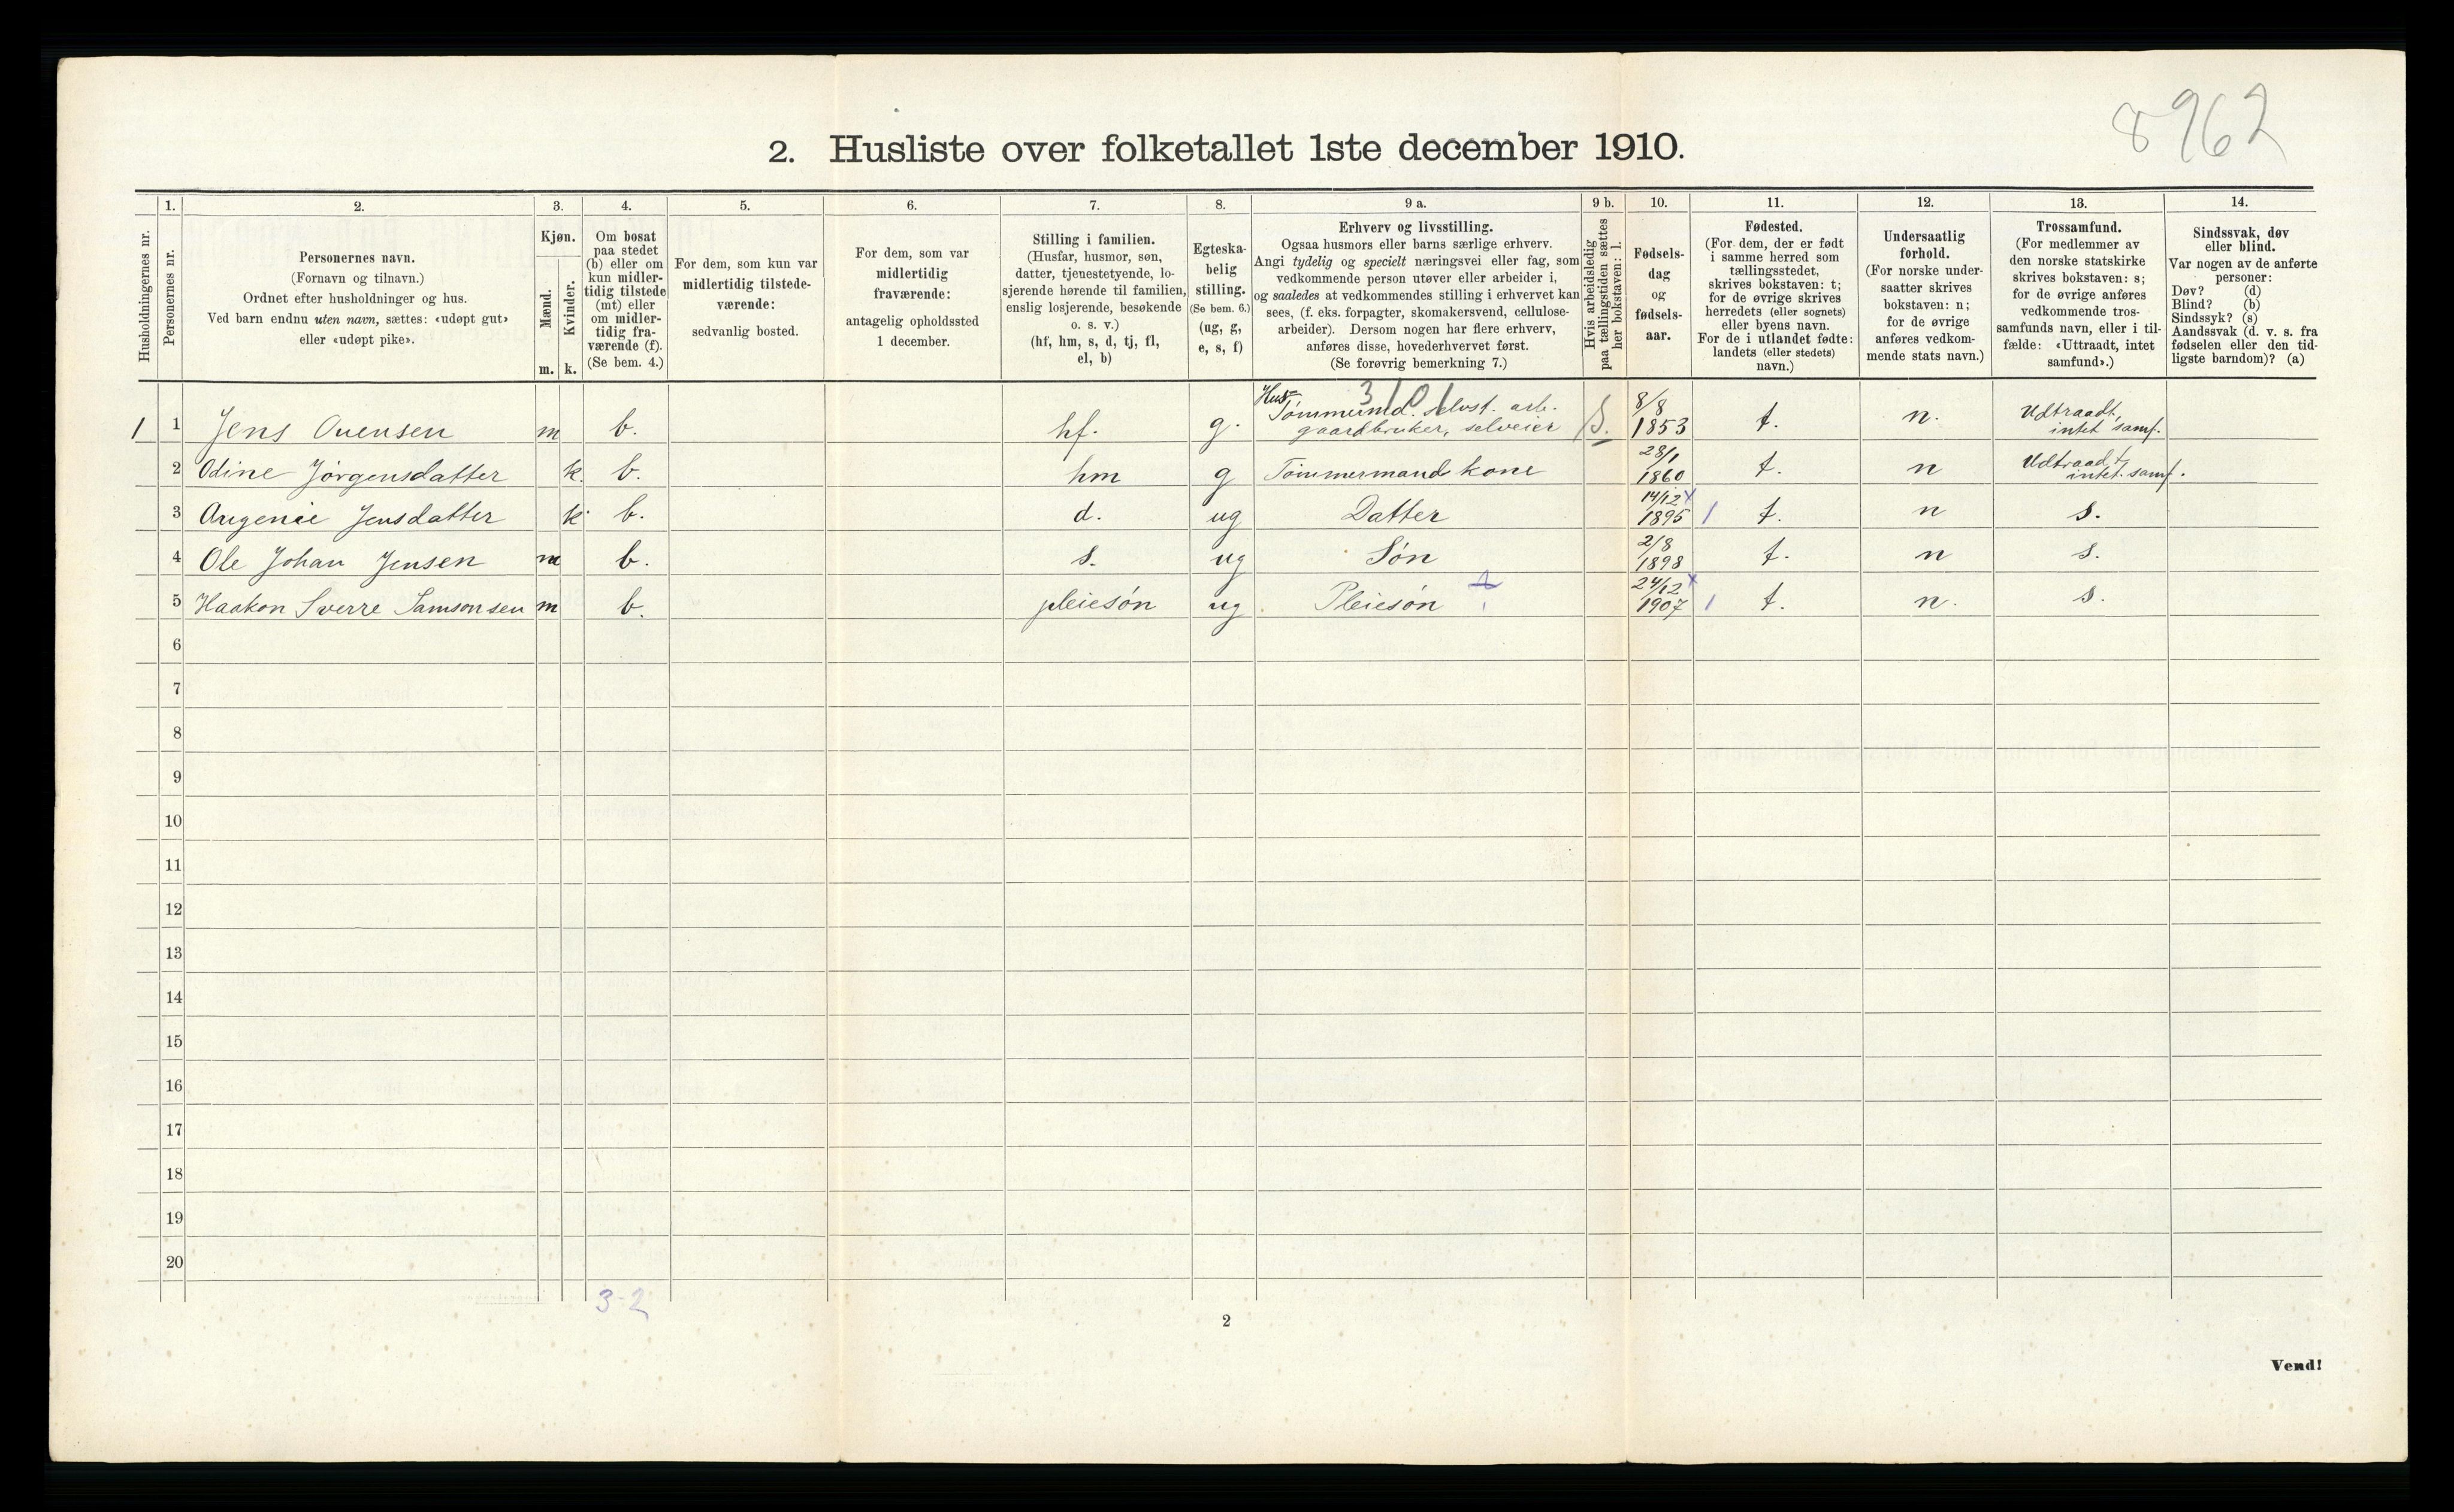 8962
2. Husliste over folketallet 1ste december 1910.
1. 2. 3. 4. 5. 6. 7. 8. 9 a. 9 b. 10. 11. 12. 13. 14.
Husholdningernes nr.
Personernes nr.
Personernes navn.
(Fornavn og tilnavn.)
Ordnet efter husholdninger og hus.
Ved barn endnu uten navn, sættes: «udøpt gut»
eller «udøpt pike».
Kjøn.
Mænd.
Kvinder.
m. k.
Om bosat
paa stedet
(b) eller om
kun midler-
tidig tilstede
(mt) eller
om midler-
tidig fra-
værende (f).
(Se bem. 4.)
For dem, som kun var
midlertidig tilstede-
værende:
sedvanlig bosted.
For dem, som var
midlertidig
fraværende:
antagelig opholdssted
1 december.
Stilling i familien.
(Husfar, husmor, søn,
datter, tjenestetyende, lo-
sjerende hørende til familien,
enslig losjerende, besøkende
o. s. v.)
(hf, hm, s, d, tj, fl,
el, b)
Egteska-
belig
stilling.
(Se bem. 6.)
(ug, g,
e, s, f)
Erhverv og livsstilling.
Ogsaa husmors eller barns særlige erhverv.
Angi tydelig og specielt næringsvei eller fag, som
vedkommende person utøver eller arbeider i,
og saaledes at vedkommendes stilling i erhvervet kan
sees, (f. eks. forpagter, skomakersvend, cellulose-
arbeider). Dersom nogen har flere erhverv,
anføres disse, hovederhvervet først.
(Se forøvrig bemerkning 7.)
Hvis arbeidsledig
paa tællingstiden sættes
her bokstaven: l.
Fødsels-
dag
og
fødsels-
aar.
Fødested.
(For dem, der er født
i samme herred som
tællingsstedet,
skrives bokstaven: t;
for de øvrige skrives
herredets (eller sognets)
eller byens navn.
For de i utlandet fødte:
landets (eller stedets)
navn.)
Undersaatlig
forhold.
(For norske under-
saatter skrives
bokstaven: n;
for de øvrige
anføres vedkom-
mende stats navn.)
Trossamfund.
(For medlemmer av
den norske statskirke
skrives bokstaven: s;
for de øvrige anføres
vedkommende tros-
samfunds navn, eller i til-
fælde: «Uttraadt, intet
samfund».)
Sindssvak, døv
eller blind.
Var nogen av de anførte
personer:
Døv? (d)
Blind? (b)
Sindssyk? (s)
Aandssvak (d. v. s. fra
fødselen eller den tid-
ligste barndom)? (a)
3101
Hus-
1 1 Jens Ouensen m b. hf. g. Tømmermd. selvst. arb. gaardbruker, selveier 8/8 1853 t. n. Udtraadt, intet samf.
2 Odine Jørgensdatter k. b. hm g Tømmermand kone 28/1 1860 t. n Udtraadt, intet samf.
3 Augenie Jensdatter k b. d. ug Datter 14/12 1895 1 t. n s.
4 Ole Johan Jensen m b. s. ug Søn 2/8 1898 t. n s.
5 Haakon Sverre Samsonsen m b. pleiesøn ug Pleiesøn 24/12 1907 1 t. n. s.
6
7
8
9
10
11
12
13
14
15
16
17
18
19
20
3-2
2
Vend!